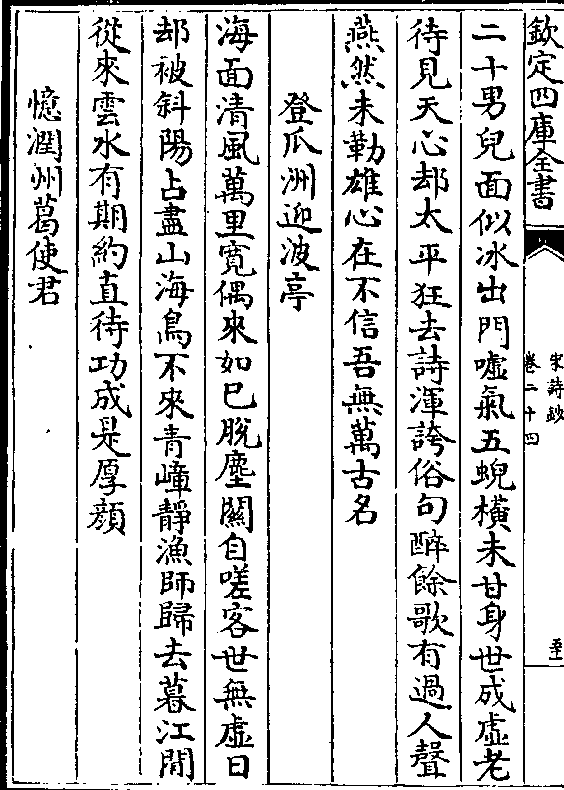 欽定四庫全書
宋詩鈔
卷二十四
二十男兒面似冰出門噓氣五蜺橫未甘身世成虛老
待見天心却太平狂去詩渾誇俗句醉餘歌有過人聲
燕然未勒雄心在不信吾無萬古名
登瓜洲迎波亭
海面清風萬里寛偶來如已脫塵闗自嗟客世無虛日
却被斜陽占盡山海鳥不來青嶂靜漁師歸去暮江閒
從來雲水有期約直待功成是厚顔
憶潤州葛使君